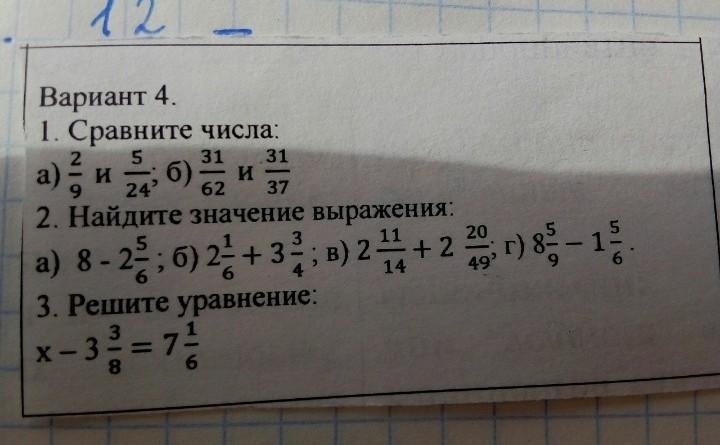 12 –
Вариант 4.
1. Сравните числа:
а) 2/9 и 5/24; б) 31/62 и 31/37
2. Найдите значение выражения:
а) 8 - 2 5/6 ; б) 2 1/6 + 3 3/4 ; в) 2 11/14 + 2 20/49; г) 8 5/9 – 1 5/6 .
3. Решите уравнение:
х – 3 3/8 = 7 1/6